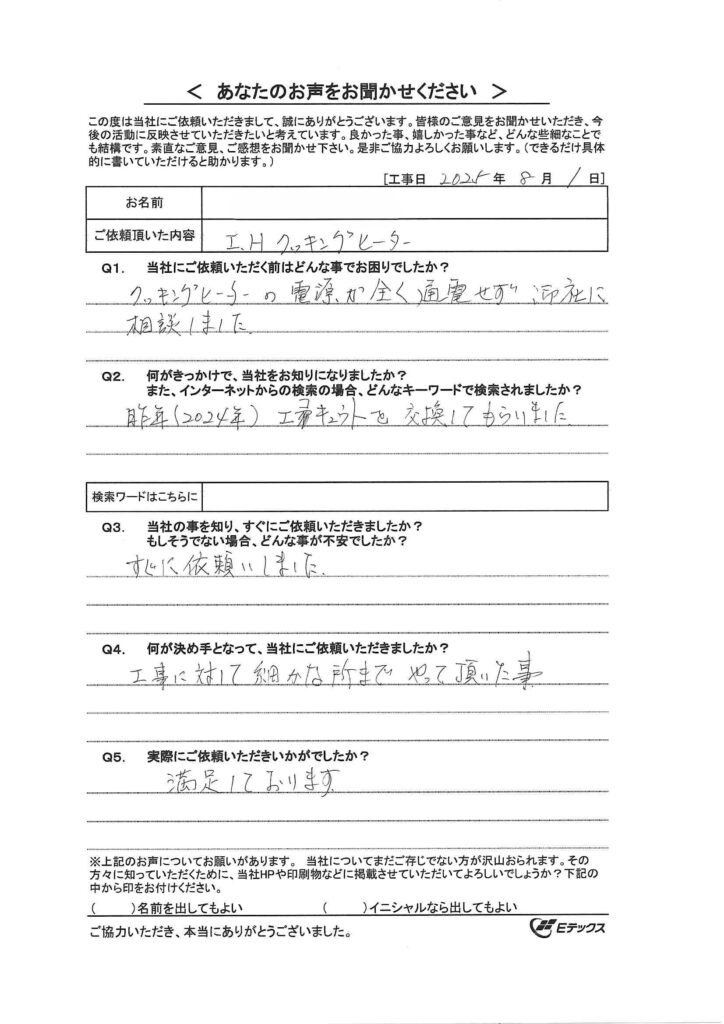 ＜ あなたのお声をお聞かせください ＞
この度は当社にご依頼いただきまして、誠にありがとうございます。皆様のご意見をお聞かせいただき、今
後の活動に反映させていただきたいと考えています。良かった事、嬉しかった事など、どんな些細なことで
も結構です。素直なご意見、ご感想をお聞かせ下さい。是非ご協力よろしくお願いします。（できるだけ具体
的に書いていただけると助かります。）
［工事日 2025 年 8 月 1 日］
お名前
ご依頼頂いた内容 I.H クッキングヒーター
Q1. 当社にご依頼いただく前はどんな事でお困りでしたか？
クッキングヒーターの電源が全く通電せず 御社に
相談しました
Q2. 何がきっかけで、当社をお知りになりましたか？
また、インターネットからの検索の場合、どんなキーワードで検索されましたか？
昨年（2024年） エコキュウトを 交換してもらいました
検索ワードはこちらに
Q3. 当社の事を知り、すぐにご依頼いただきましたか？
もしそうでない場合、どんな事が不安でしたか？
すぐに依頼いしました
Q4. 何が決め手となって、当社にご依頼いただきましたか？
工事に対して細かな所まで やって頂いた事
Q5. 実際にご依頼いただきいかがでしたか？
満足しております
※上記のお声についてお願いがあります。 当社についてまだご存じでない方が沢山おられます。その
方々に知っていただくために、当社HPや印刷物などに掲載させていただいてよろしいでしょうか？下記の
中から印をお付けください。
（　　）名前を出してもよい　　（　　）イニシャルなら出してもよい
ご協力いただき、本当にありがとうございました。
Eテックス